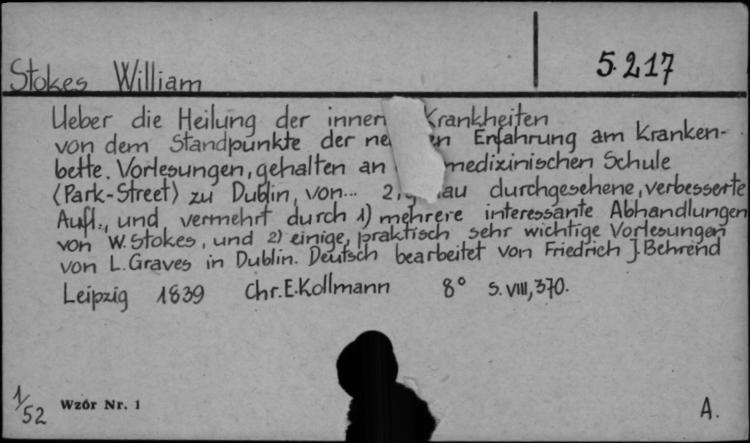 Stokes William
5.217
Ueber die Heilung der innern Krankheiten
von dem Standpunkte der Erfahrung am Kranken-
bette. Vorlesungen, gehalten an medizinischen Schule
(Park-Street) zu Dublin, von... 2, durchgesehene, verbesserte
Aufl., und vermehrt durch 1) mehrere interessante Abhandlungen
von W. Stokes, und 2) einige, praktisch sehr wichtige Vorlesungen
von L. Graves in Dublin. Deutsch bearbeitet von Friedrich J. Behrend
Leipzig 1839 Chr. E. Kollmann 8° S. VIII, 370.
1/52 Wzór Nr. 1 A.